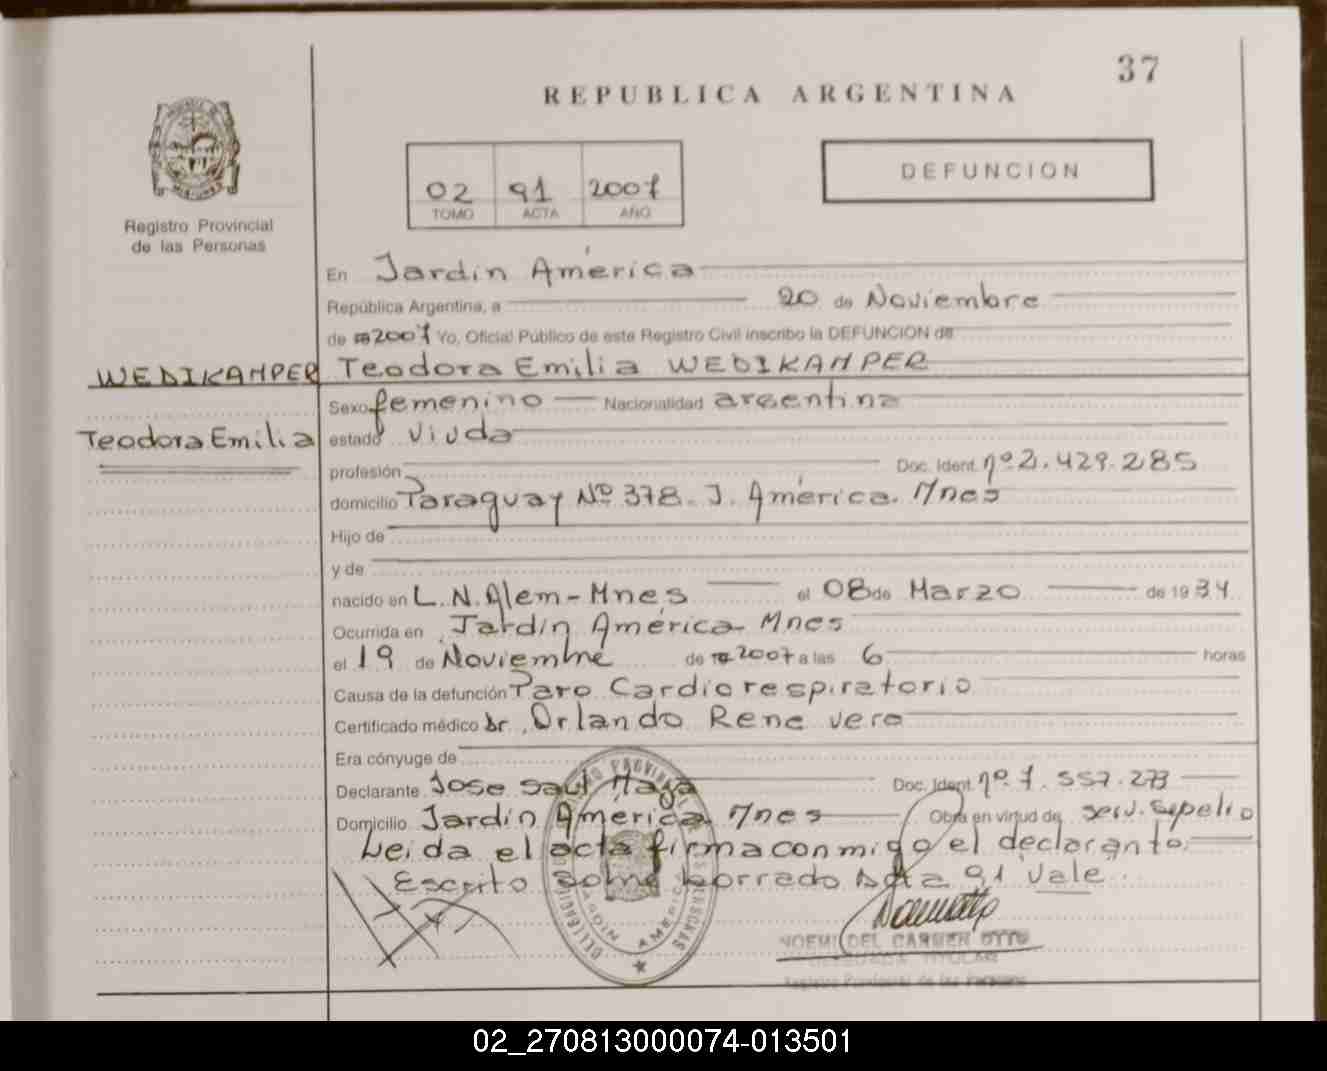 37
REPUBLICA ARGENTINA
DEFUNCION
02 91 2007
TOMO ACTA AÑO
Registro Provincial
de las Personas
En Jardín América
República Argentina, a 20 de Noviembre
de 2007 Yo, Oficial Público de este Registro Civil inscribo la DEFUNCION de
WEDIKAMPER Teodora Emilia WEDIKAMPER
Sexo femenino Nacionalidad argentina
Teodora Emilia estado viuda
profesión Doc. Ident. nº 2.429.285
domicilio Paraguay Nº 378. J. América. Mnes
Hijo de
y de
nacido en L.N. Alem-Mnes el 08 de Marzo de 1934
Ocurrida en Jardín América Mnes
el 19 de Noviembre de 2007 a las 6 horas
Causa de la defunción Paro Cardiorespiratorio
Certificado médico Dr. Orlando Rene Vera
Era cónyuge de
Declarante Jose Saul Maza Doc. Ident. nº 7.557.273
Domicilio Jardín América Mnes Obra en virtud de serv. sepelio
Leida el acta firma conmigo el declarante.
Escrito sobre borrado Acta 91 Vale.
NOEMI DEL CARMEN OTTO
DELEGADA TITULAR
Registro Provincial de las Personas
02_270813000074-013501